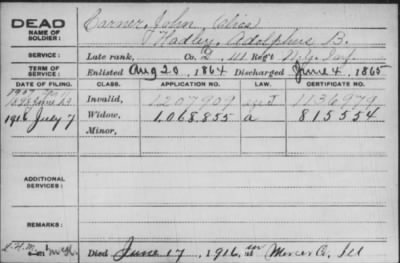 DEAD
NAME OF SOLDIER:
Carner, John, (Alias
Hadley, Adolphus B.
SERVICE:
Late rank, Co. G, 111 Reg't N.Y. Inf.
TERM OF SERVICE:
Enlisted Aug 20, 1864 Discharged June 4, 1865
DATE OF FILING. CLASS. APPLICATION NO. LAW. CERTIFICATE NO.
1898 Invalid, 1207909 1136979
1916 July 7 Widow, 1,068,855 a 815554
Minor,
ADDITIONAL SERVICES:
REMARKS:
Died June 17, 1916, Mercer Co, Ill